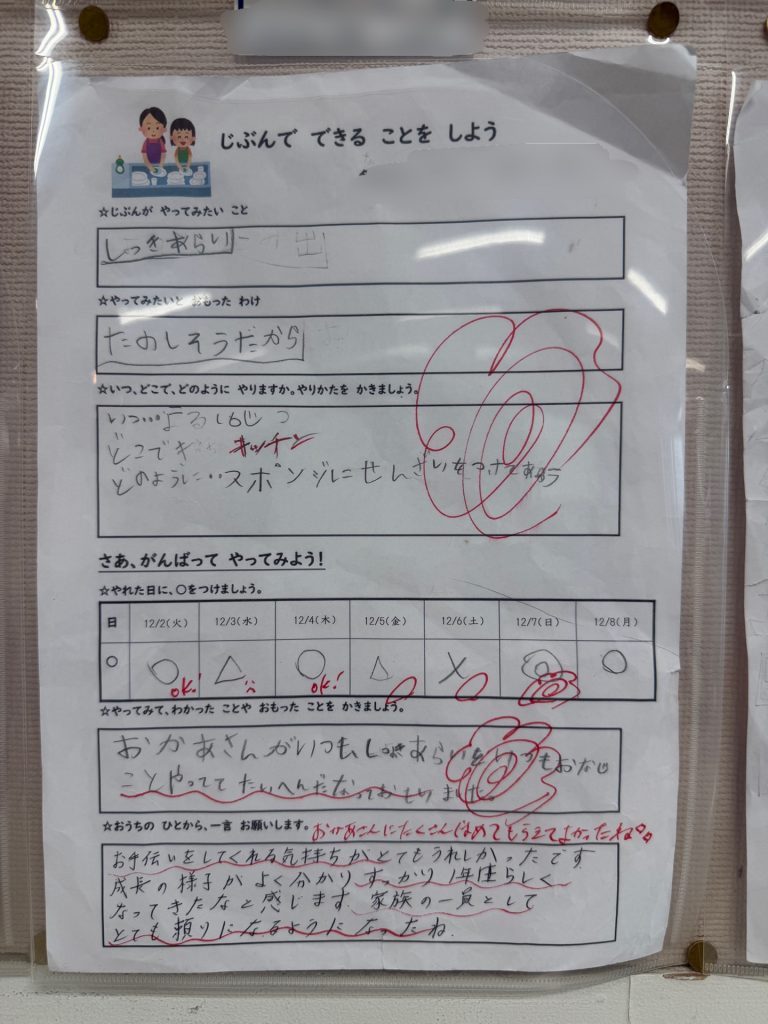 じぶんで できる ことを しよう
☆じぶんが やってみたい こと
しょっきあらい
☆やってみたいと おもった わけ
たのしそうだから
☆いつ、どこで、どのように やりますか。やりかたを かきましょう。
いつ…よる
どこで キッチン
どのように…スポンジにせんざいをつけてあらう
さあ、がんばって やってみよう!
☆やれた日に、○をつけましょう。
日 12/2(火) 12/3(水) 12/4(木) 12/5(金) 12/6(土) 12/7(日) 12/8(月)
○ ○ △ ○ △ × ◎ ○
OK! OK!
☆やってみて、わかった ことや おもった ことを かきましょう。
おかあさんがいつも あらいを いつもおなじ
ことやっててたいへんだなっておもいました。
☆おうちの ひとから、一言 お願いします。
おかあさんにたくさんほめてもらえてよかったね
お手伝いをしてくれる気持ちがとてもうれしかったです
成長の様子がよく分かりすっかり1年生らしく
なってきたなと感じます 家族の一員として
とても頼りになるようになったね.